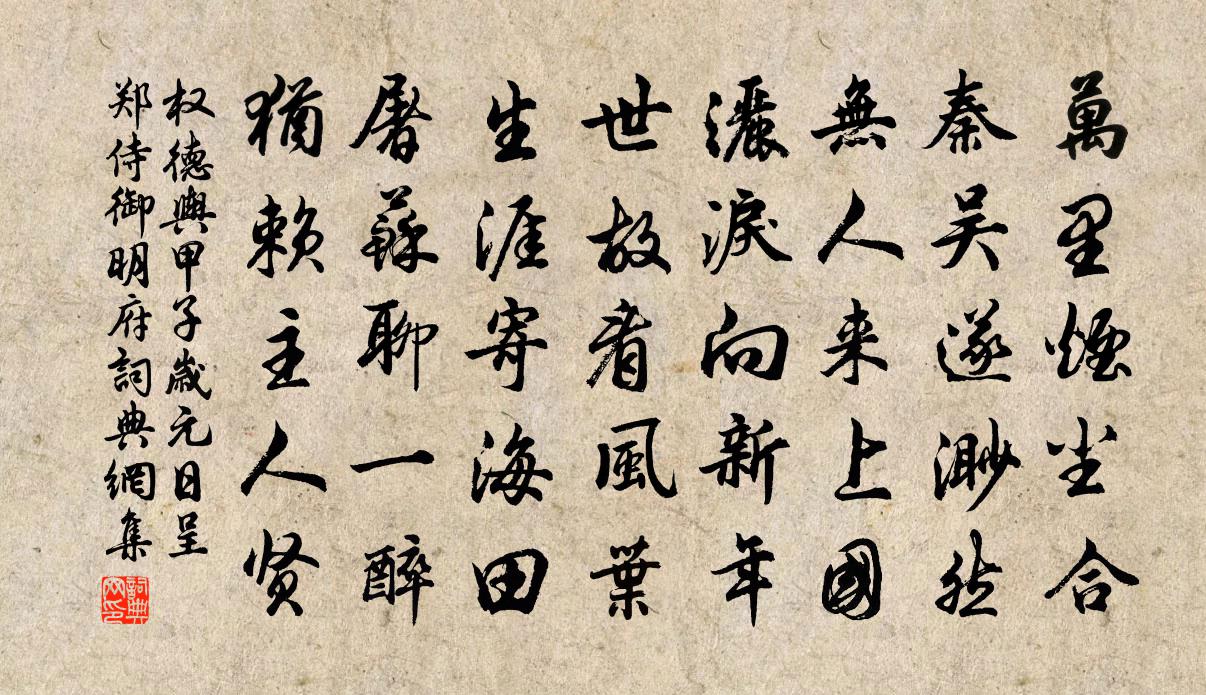 萬里煙尘合
秦吴遂渺然
無人来上國
灑淚向新年
世故看風葉
生涯寄海田
屠蘇聊一醉
猶赖主人贤
权德輿甲子歲元日呈
郑侍御明府詞典網集
詞典
网印